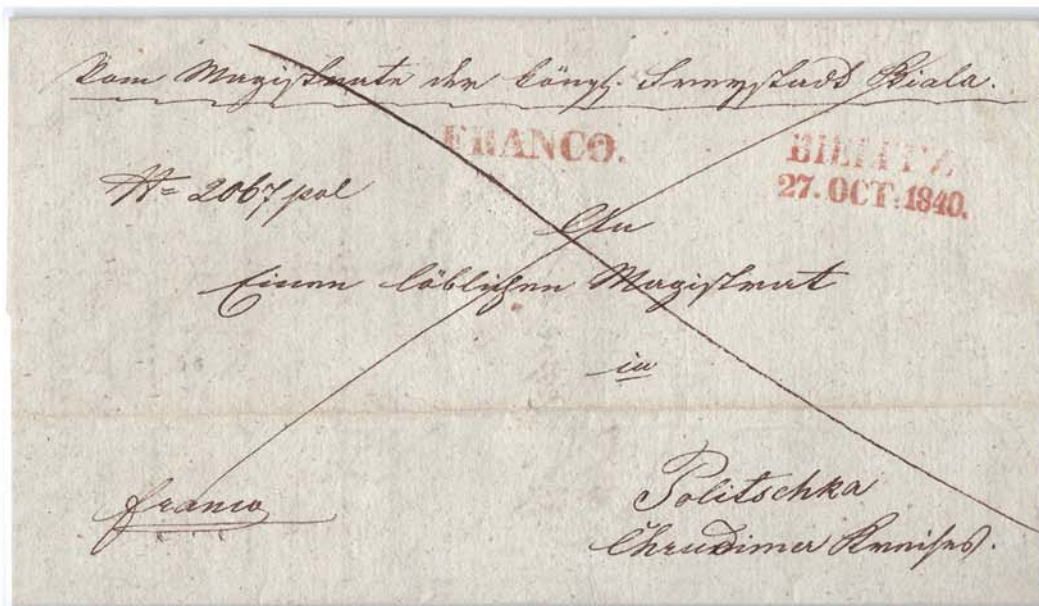 Vom Magistrate der königl. Freystadt Biala.
FRANCO.
BIELITZ
27. OCT: 1840.
N= 2067 pol
An
Einen löblichen Magistrat
in
Politschka
Chrudimer Kreises.
franco